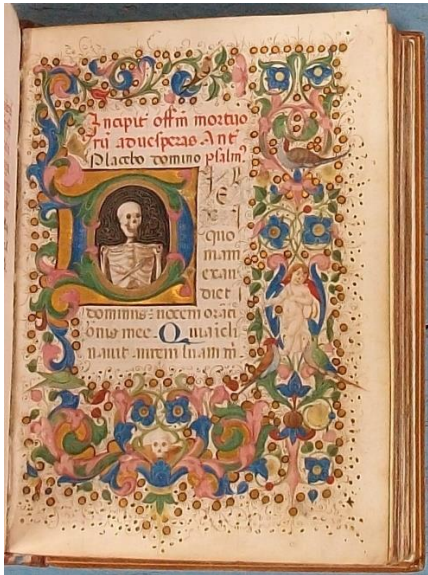 Incipit offm mortuo
rū ad vesperas. Ant
Placebo domino psalm̄.
quo
niam
exau
diet
dominus: vocem orati
ōnis mee. Quia icli
navit aurem suam m̄